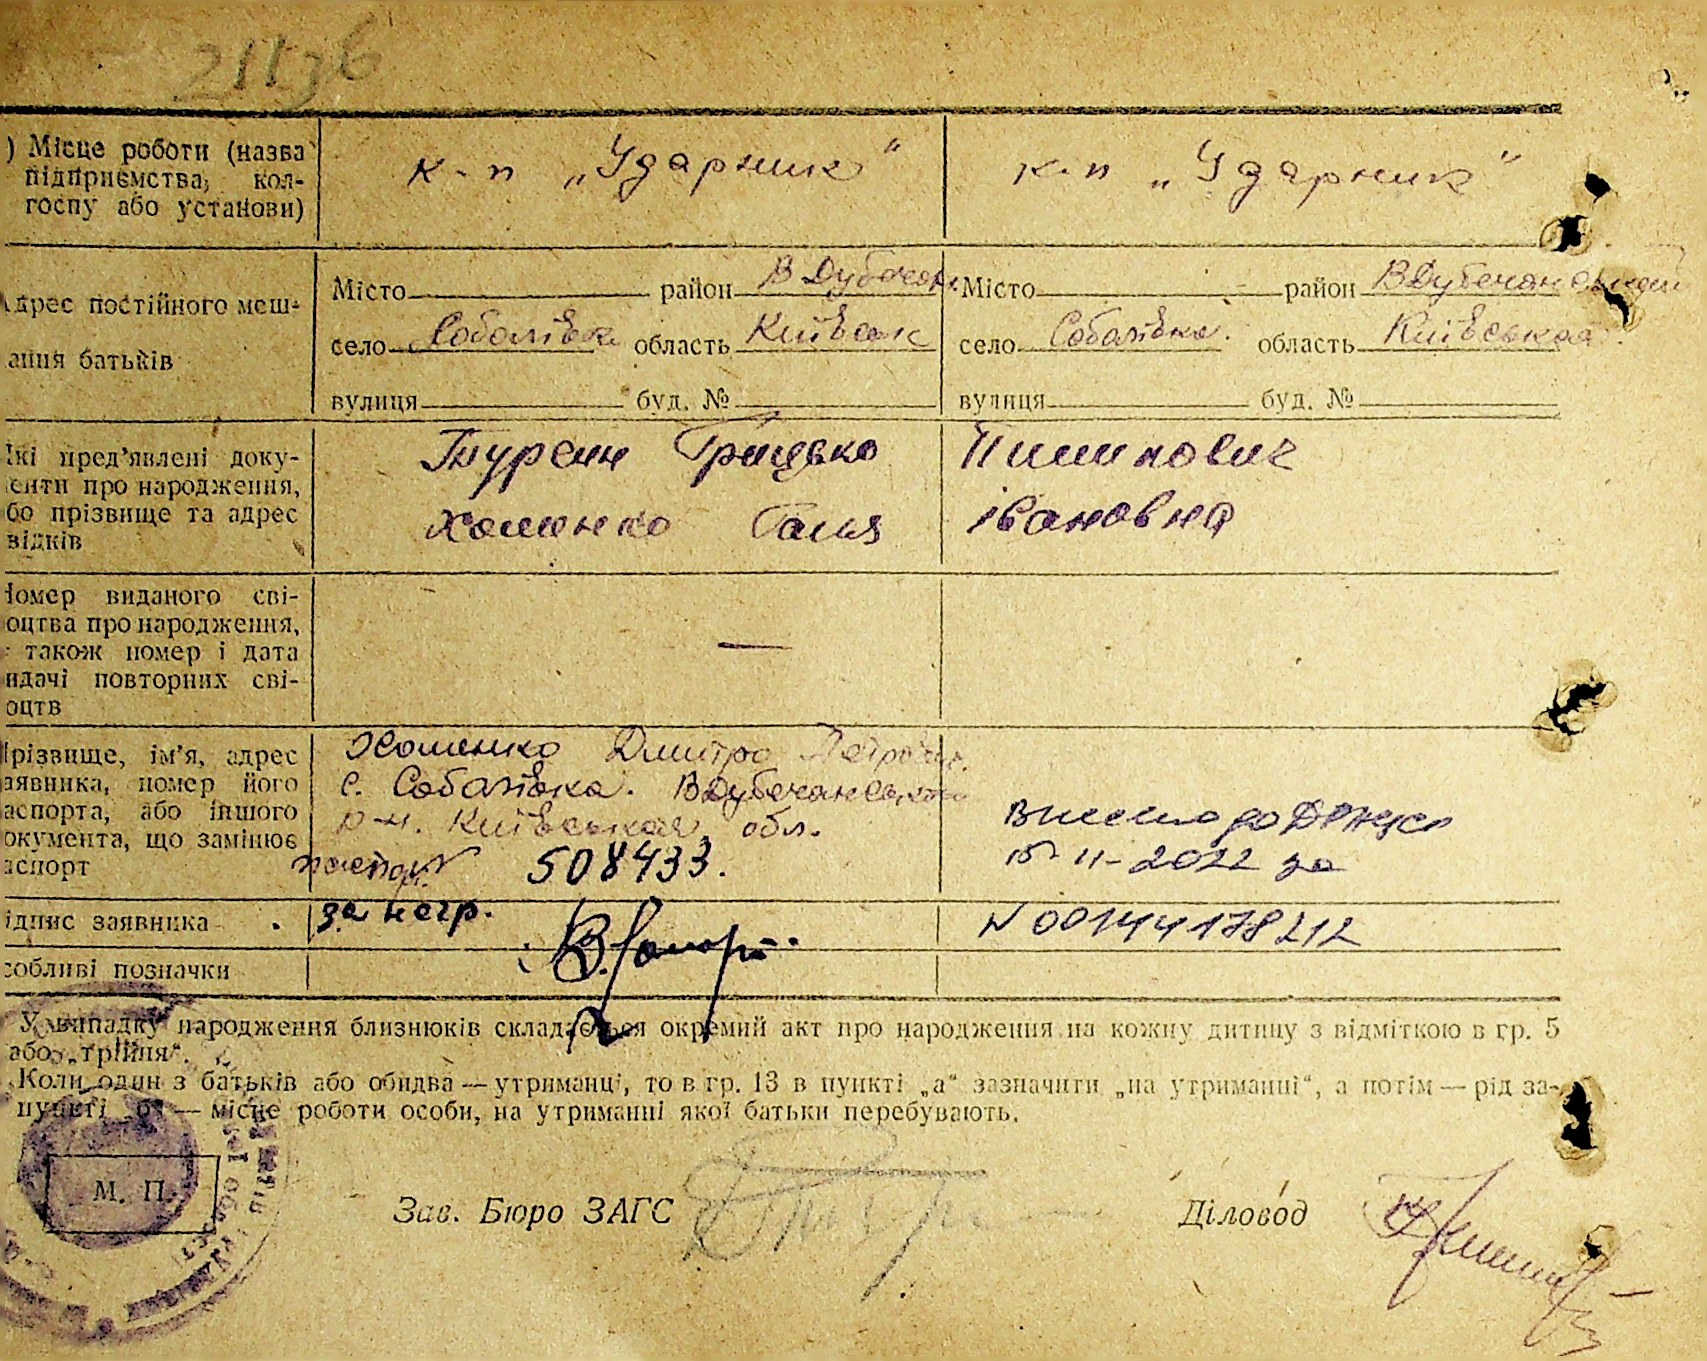 21136
) Місце роботи (назва підприємства, кол-госпу або установи)
к-п „Ударник“
к-п „Ударник“
дрес постійного меш-
ання батьків
Місто район В Дубечан
село Соболівка область Київськ
вулиця буд. №
Місто район ВДубечанський
село Соболівка. область Київська
вулиця буд. №
кі пред’явлені доку-
енти про народження,
бо прізвище та адрес
відків
Грицько Пилипович
Хоменко Галя Івановна
Номер виданого сві-
оцтва про народження,
також номер і дата
идачі повторних сві-
оцтв
—
Прізвище, ім’я, адрес
аявника, номер його
аспорта, або іншого
окумента, що замінює
аспорт
Хоменко Дмитро Петрович.
с. Соболівка. ВДубечанський
р-н. Київська обл.
паспорт 508433.
Внесено до ДРАЦС
15-11-2022 за
N 00144178212
ідпис заявника
за негр.
собливі позначки
У випадку народження близнюків складається окремий акт про народження на кожну дитину з відміткою в гр. 5
або „трійня“.
Коли один з батьків або обидва — утриманці, то в гр. 13 в пункті „а“ зазначити „на утриманні“, а потім — рід за-
пункті „б“ — місце роботи особи, на утриманні якої батьки перебувають.
М. П.
Зав. Бюро ЗАГС
Діловод